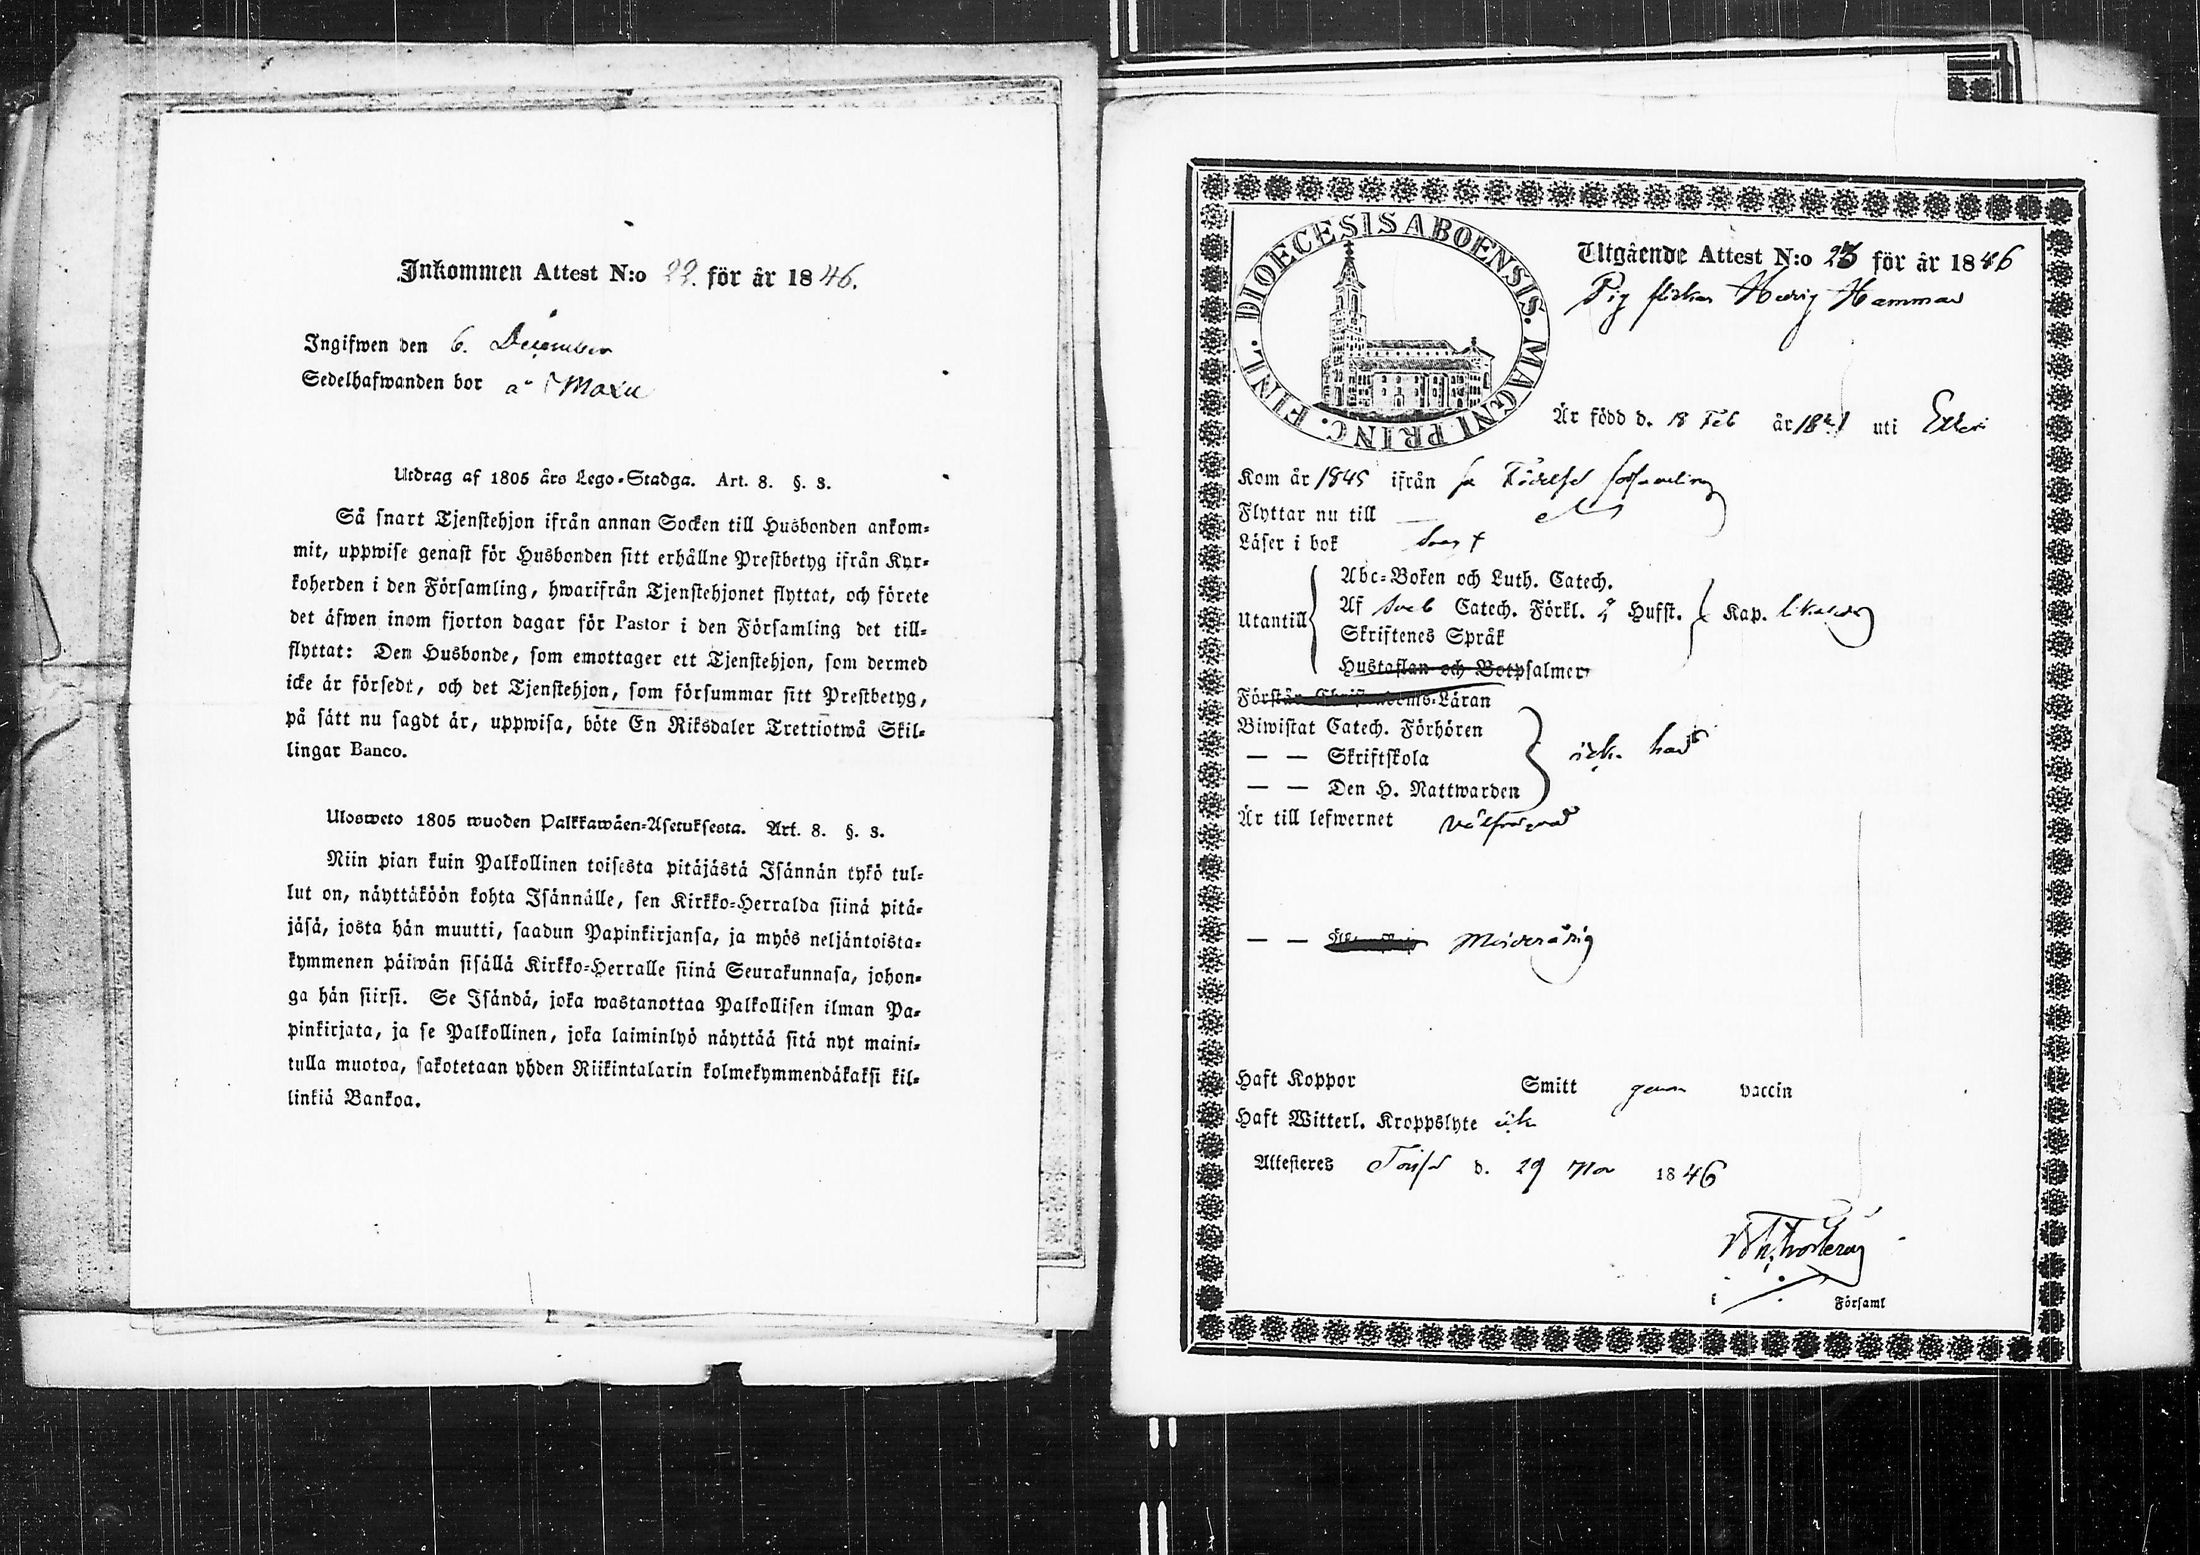 Inkommen Attest N:o 22. för år 1846.
Ingifwen den 6. December
Sedelhafwanden bor å
Utdrag af 1805 års Lego-Stadga. Art. 8. §. 3.
Så snart Tjenstehjon ifrån annan Socken till Husbonden ankom-
mit, uppwise genast för Husbonden sitt erhållne Prestbetyg ifrån Kyr-
koherden i den Församling, hwarifrån Tjenstehjonet flyttat, och förete
det äfwen inom fjorton dagar för Pastor i den Församling det till-
flyttat: Den Husbonde, som emottager ett Tjenstehjon, som dermed
icke är försedt, och det Tjenstehjon, som försummar sitt Prestbetyg,
på sätt nu sagdt är, uppwisa, böte En Riksdaler Trettiotwå Skil-
lingar Banco.
Ulosweto 1805 wuoden Palkkawäen-Asetuksesta. Art. 8. §. 3.
Niin pian kuin Palkollinen toisesta pitäjästä Isännän tykö tul-
lut on, näyttäköön kohta Isännälle, sen Kirkko-Herralda siinä pitä-
jäsä, josta hän muutti, saadun Papinkirjansa, ja myös neljäntoista-
kymmenen päiwän sisällä Kirkko-Herralle siinä Seurakunnasa, johon-
ga hän siirsi. Se Isändä, joka wastanottaa Palkollisen ilman Pa-
pinkirjata, ja se Palkollinen, joka laiminlyö näyttää sitä nyt maini-
tulla muotoa, sakotetaan yhden Riikintalarin kolmekymmendäkaksi kil-
linkiä Bankoa.
DIOECESIS ABOENSIS. MAGNI PRINC. FINL.
Utgående Attest N:o 23 för år 1846
Pig flickan Hedvig Hammar
Är född d. 18 Feb år 18 uti
Kom år 1845 ifrån församling
Flyttar nu till
Läser i bok svagt
Utantill
Abc-Boken och Luth. Catech.
Af Catech. Förkl. Hufst. Kap.
Skriftenes Språk
Hustaflan och Botpsalmer
Förstår Christendoms-Läran
Biwistat Catech. Förhören
— — Skriftskola
— — Den H. Nattwarden
Är till lefwernet välfrägdad
— — Minderårig
Haft Koppor Smitt genom vaccin
Haft Witterl. Kroppslyte
Attesteres d. 29 Nov 1846
i Församl